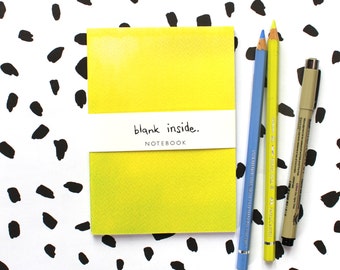 blank inside.
NOTEBOOK